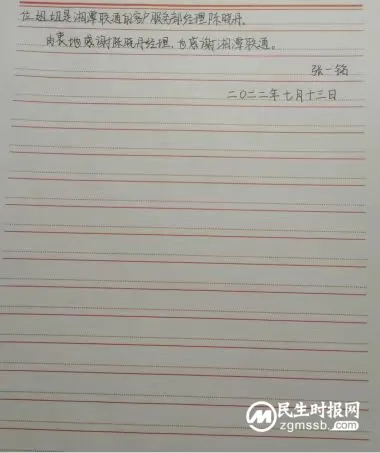 位姐姐是湘潭联通的客户服务部经理陈晓丹。
由衷地感谢陈晓丹经理，也感谢湘潭联通。
张一铭
二〇二二年七月十三日
民生时报网
zgmssb.com